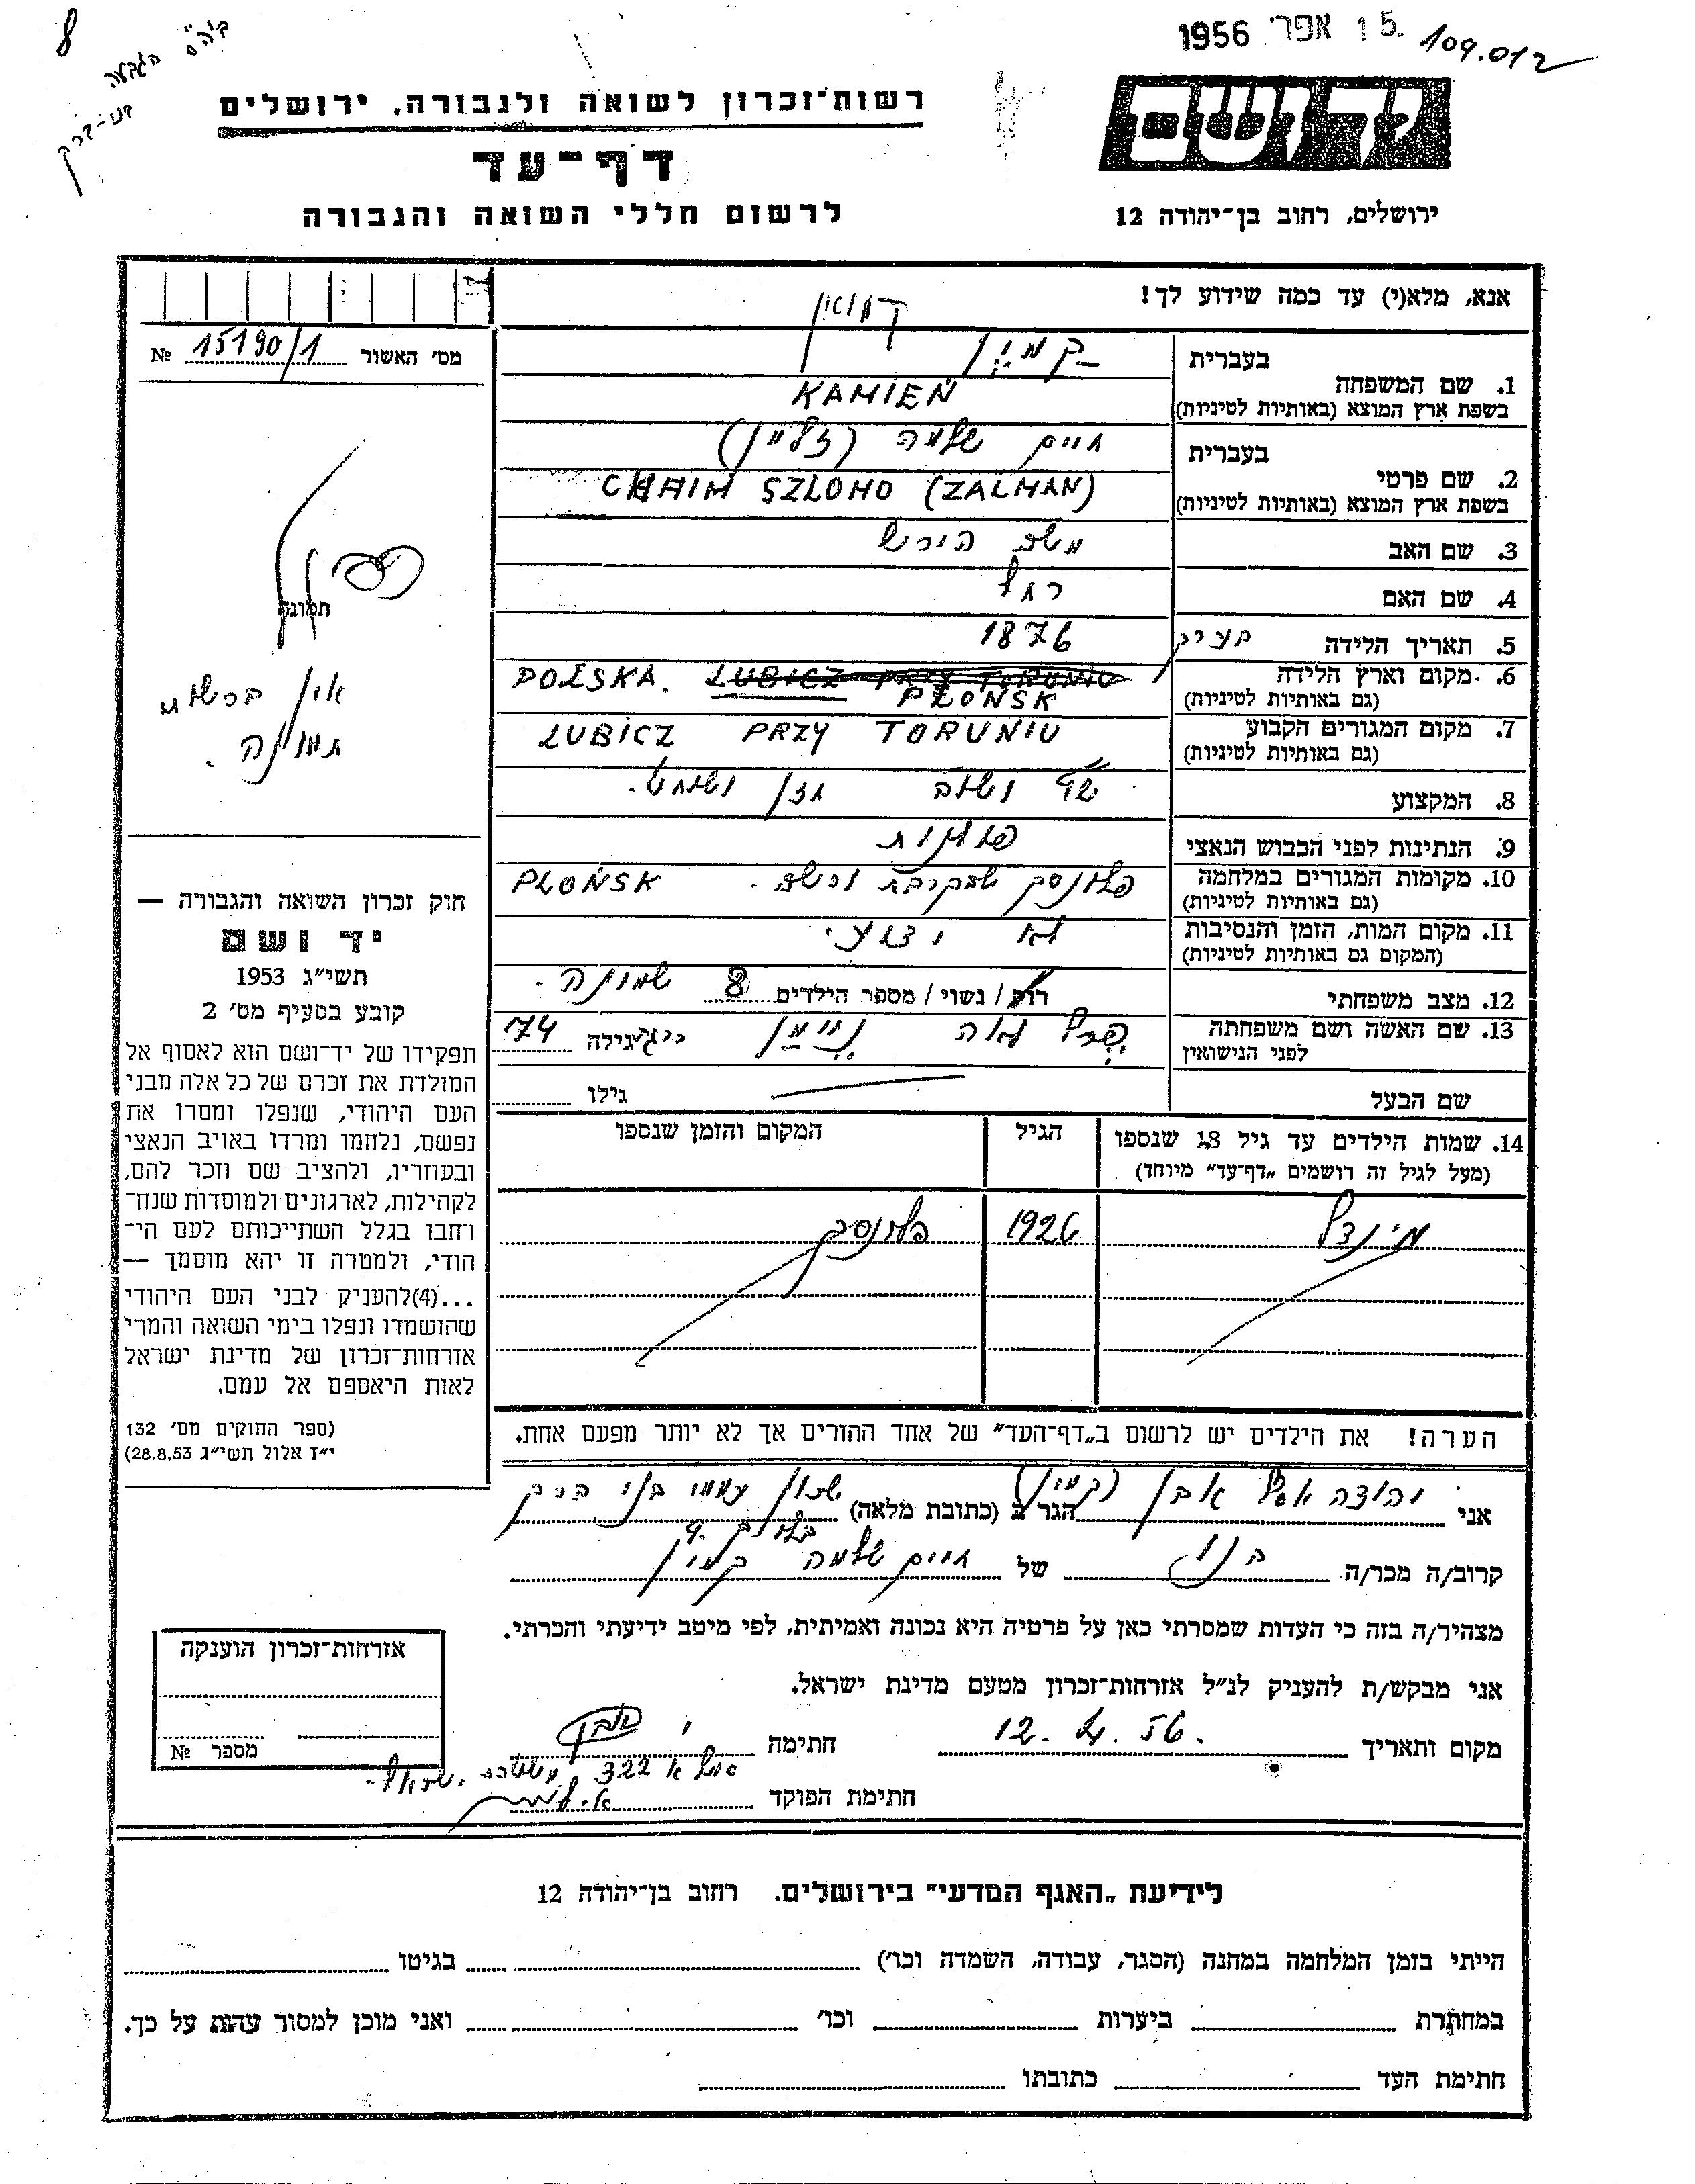 15 אפר׳ 1956
109.012
8
יד ושם
רשות־זכרון לשואה ולגבורה, ירושלים
דף־עד
לרשום חללי השואה והגבורה
ירושלים, רחוב בן־יהודה 12
אנא, מלא(י) עד כמה שידוע לך!
מס׳ האשור 15190/1 №
1. שם המשפחה
בעברית קמין
בשפת ארץ המוצא (באותיות לטיניות) KAMIEŃ
2. שם פרטי
בעברית חיים שלמה (זלמן)
בשפת ארץ המוצא (באותיות לטיניות) CHAIM SZLOMO (ZALMAN)
3. שם האב משה הירש
4. שם האם רחל
5. תאריך הלידה 1876
6. מקום וארץ הלידה POLSKA. LUBICZ PRZY TORUNIU
(גם באותיות לטיניות) PŁOŃSK
7. מקום המגורים הקבוע LUBICZ PRZY TORUNIU
(גם באותיות לטיניות)
8. המקצוע שו״ב חזן ושוחט.
9. הנתינות לפני הכבוש הנאצי פולנית
10. מקומות המגורים במלחמה פלונסק שבקרבת ורשה. PŁOŃSK
(גם באותיות לטיניות)
11. מקום המות, הזמן והנסיבות לא ידוע.
(המקום גם באותיות לטיניות)
12. מצב משפחתי רווק / נשוי / מספר הילדים 8 שמונה.
13. שם האשה ושם משפחתה לפני הנישואין פרל לאה ניימן גילה 74
שם הבעל גילו
14. שמות הילדים עד גיל 18 שנספו הגיל המקום והזמן שנספו
(מעל לגיל זה רושמים „דף־עד״ מיוחד)
מינדל 1926 פלונסק
הערה! את הילדים יש לרשום ב„דף־העד״ של אחד ההורים אך לא יותר מפעם אחת.
תמונה
אין ברשותי
תמונה.
חוק זכרון השואה והגבורה —
יד ושם
תשי״ג 1953
קובע בסעיף מס׳ 2
תפקידו של יד־ושם הוא לאסוף אל
המולדת את זכרם של כל אלה מבני
העם היהודי, שנפלו ומסרו את
נפשם, נלחמו ומרדו באויב הנאצי
ובעוזריו, ולהציב שם וזכר להם,
לקהילות, לארגונים ולמוסדות שנח־
רחבו בגלל השתייכותם לעם הי־
הודי, ולמטרה זו יהא מוסמך —
...(4)להעניק לבני העם היהודי
שהושמדו ונפלו בימי השואה והמרי
אזרחות־זכרון של מדינת ישראל
לאות היאספם אל עמם.
(ספר החוקים מס׳ 132
י״ז אלול תשי״ג 28.8.53)
אני יהודה אבן (קמין) הגר ב (כתובת מלאה) שכון עממי בני ברק
קרוב/ה מכר/ה בנו של חיים שלמה קמין
מצהיר/ה בזה כי העדות שמסרתי כאן על פרטיה היא נכונה ואמיתית, לפי מיטב ידיעתי והכרתי.
אני מבקש/ת להעניק לנ״ל אזרחות־זכרון מטעם מדינת ישראל.
מקום ותאריך 12. 4. 56. חתימה י אבן
322 משטרת ישראל
חתימת הפוקד
אזרחות־זכרון הוענקה
מספר №
לידיעת „האגף המדעי״ בירושלים. רחוב בן־יהודה 12
הייתי בזמן המלחמה במחנה (הסגר, עבודה, השמדה וכו׳) בגיטו
במחתרת ביערות וכו׳ ואני מוכן למסור עדות על כך.
חתימת העד כתובתו